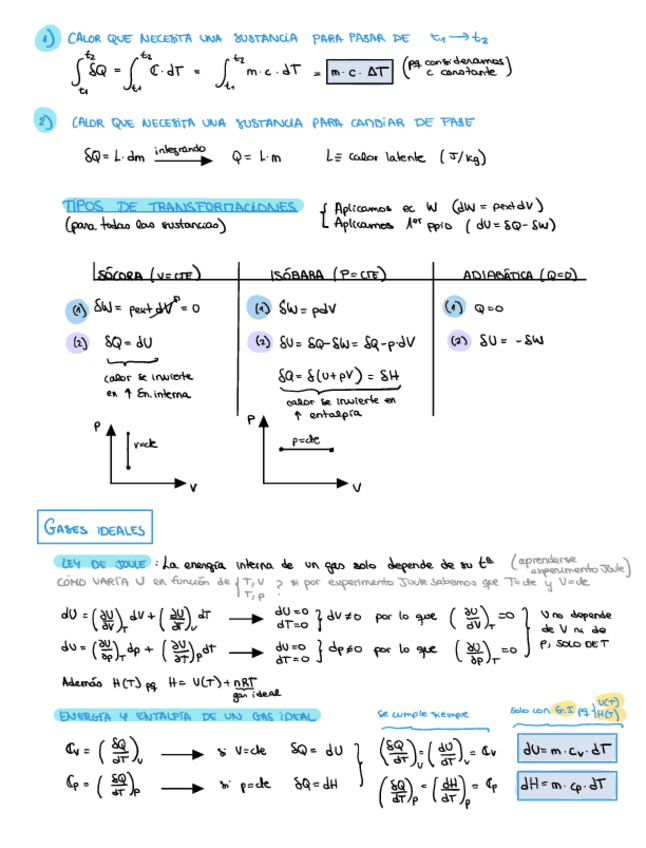 1) CALOR QUE NECESITA UNA SUSTANCIA PARA PASAR DE t₁ → t₂
∫_{t₁}^{t₂} δQ = ∫_{t₁}^{t₂} C·dT = ∫_{t₁}^{t₂} m·c·dT = m·c·ΔT (pq consideramos c constante)
2) CALOR QUE NECESITA UNA SUSTANCIA PARA CAMBIAR DE FASE
δQ = L·dm integrando → Q = L·m L ≡ calor latente (J/kg)
TIPOS DE TRANSFORMACIONES { Aplicamos ec W (dW = pext dV)
(para todas las sustancias) Aplicamos 1er ppio (dU = δQ - δW)
ISÓCORA (V=CTE) ISÓBARA (P=CTE) ADIABÁTICA (Q=0)
(1) δW = pext dV⁰ = 0 (1) δW = pdV (1) Q=0
(2) δQ = dU (2) δU = δQ - δW = δQ - p·dV (2) δU = -δW
calor se invierte en ↑ En. interna δQ = δ(U+pV) = δH
calor se invierte en ↑ entalpía
P v=cte V P p=cte V
GASES IDEALES
LEY DE JOULE: La energía interna de un gas solo depende de su tª (aprenderse experimento Joule)
CÓMO VARÍA U en función de { T, V T, p ? si por experimento Joule sabemos que T=cte y V=cte
dU = (∂U/∂V)_T dV + (∂U/∂T)_V dT → dU=0 dT=0 } dV≠0 por lo que (∂U/∂V)_T = 0 U no depende
dU = (∂U/∂p)_T dp + (∂U/∂T)_p dT → dU=0 dT=0 } dp≠0 por lo que (∂U/∂p)_T = 0 de V ni de p, SOLO DE T
Además H(T) pq H = U(T) + nRT
gas ideal
ENERGÍA Y ENTALPÍA DE UN GAS IDEAL se cumple siempre solo con G.I pq { U(T) H(T)
Cv = (δQ/dT)_v → si V=cte δQ = dU (δQ/dT)_v = (dU/dT)_v = Cv dU = m·cv·dT
Cp = (δQ/dT)_p → si p=cte δQ = dH (δQ/dT)_p = (dH/dT)_p = Cp dH = m·cp·dT